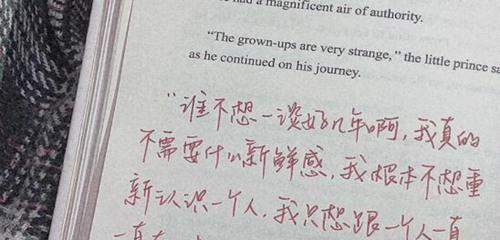 had a magnificent air of authority.
"The grown-ups are very strange," the little prince sa
as he continued on his journey.
"谁不想一谈好几年啊,我真的
不需要什么新鲜感,我根本不想重
新认识一个人,我只想跟一个人一直
一直在